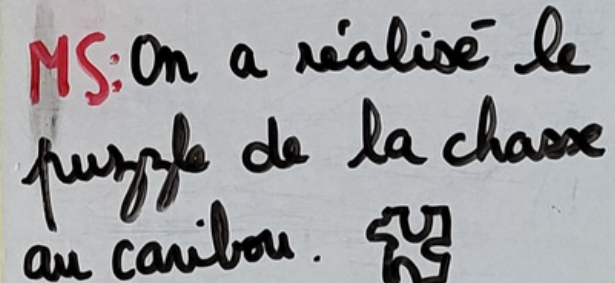 MS: On a réalisé le
puzzle de la chasse
au caribou.